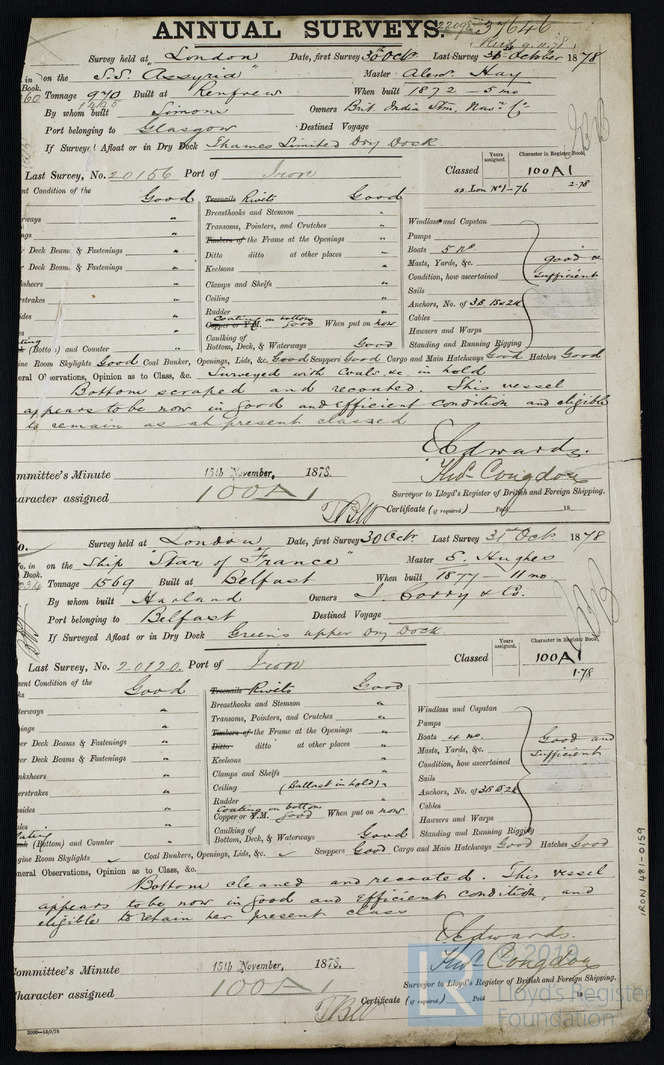 ANNUAL SURVEYS.
22098 37646
Survey held at London Date, first Survey 30th Octr. Last Survey 31st October 1878
on the S.S. Assyria Master Alexr. Hay
Book. 60 Tonnage 970 Built at Renfrew When built 1872 - 5 mo
By whom built Simons Owners Brit. India Stm. Navn. Co.
Port belonging to Glasgow Destined Voyage
If Surveyed Afloat or in Dry Dock Thames Limited Dry Dock
Last Survey, No. 20156 Port of Iron Classed Years assigned. Character in Register Book. 100A1
ss. Lon No1-76 2.78
ent Condition of the Good Treenails Rivets Good
Breasthooks and Stemson "
Transoms, Pointers, and Crutches "
Timbers of the Frame at the Openings "
Ditto ditto at other places "
Keelsons "
Clamps and Shelfs "
Ceiling "
Rudder "
Coating on bottom
Copper or Y.M. Good When put on now
Caulking of
Bottom, Deck, & Waterways Good
Deck Beams & Fastenings "
Deck Beams & Fastenings "
(Bottom) and Counter "
Windlass and Capstan
Pumps
Boats 5 No
Masts, Yards, &c.
Condition, how ascertained
Sails
Anchors, No. of 3B 1S 2K
Cables
Hawsers and Warps
Standing and Running Rigging
good & sufficient
ine Room Skylights Good Coal Bunker, Openings, Lids, &c. Good Scuppers Good Cargo and Main Hatchways Good Hatches Good
eral Observations, Opinion as to Class, &c. Surveyed with Coals &c. in hold
Bottom scraped and recoated. This vessel
appears to be now in good and efficient condition and eligible
to remain as at present classed
Edwards.
Thos. Congdon
Surveyor to Lloyd's Register of British and Foreign Shipping.
ommittee's Minute 15th November, 1878.
haracter assigned 100A1
Certificate (if required) Paid 18
No. Survey held at London Date, first Survey 30 Octr. Last Survey 31st Oct. 1878
on the Ship "Star of France" Master S. Hughes
Book. Tonnage 1569 Built at Belfast When built 1877 - 11 mo.
By whom built Harland Owners J. Corry & Co.
Port belonging to Belfast Destined Voyage
If Surveyed Afloat or in Dry Dock Green's upper Dry Dock.
Last Survey, No. 20120. Port of Iron Classed Years assigned. Character in Register Book. 100A1
1.78
ent Condition of the Good Treenails Rivets Good
Breasthooks and Stemson "
Transoms, Pointers, and Crutches "
Timbers of the Frame at the Openings "
Ditto ditto at other places "
Keelsons "
Clamps and Shelfs "
Ceiling (Ballast in hold) "
Rudder "
Coating on bottom
Copper or Y.M. Good When put on now
Caulking of
Bottom, Deck, & Waterways Good
er Deck Beams & Fastenings "
er Deck Beams & Fastenings "
(Bottom) and Counter "
Windlass and Capstan
Pumps
Boats 4 no.
Masts, Yards, &c.
Condition, how ascertained
Sails
Anchors, No. of 3B 1S 2K
Cables
Hawsers and Warps
Standing and Running Rigging
Good and sufficient
gine Room Skylights Coal Bunkers, Openings, Lids, &c. Scuppers Good Cargo and Main Hatchways Good Hatches Good
neral Observations, Opinion as to Class, &c.
Bottom cleaned and recoated. This vessel
appears to be now in good and efficient condition, and
eligible to retain her present class
Edwards.
Thos. Congdon
Surveyor to Lloyd's Register of British and Foreign Shipping.
Committee's Minute 15th November, 1878.
Character assigned 100A1
Certificate (if required) Paid 18
IRON 481-0159
© 2019
Lloyd's Register
Foundation